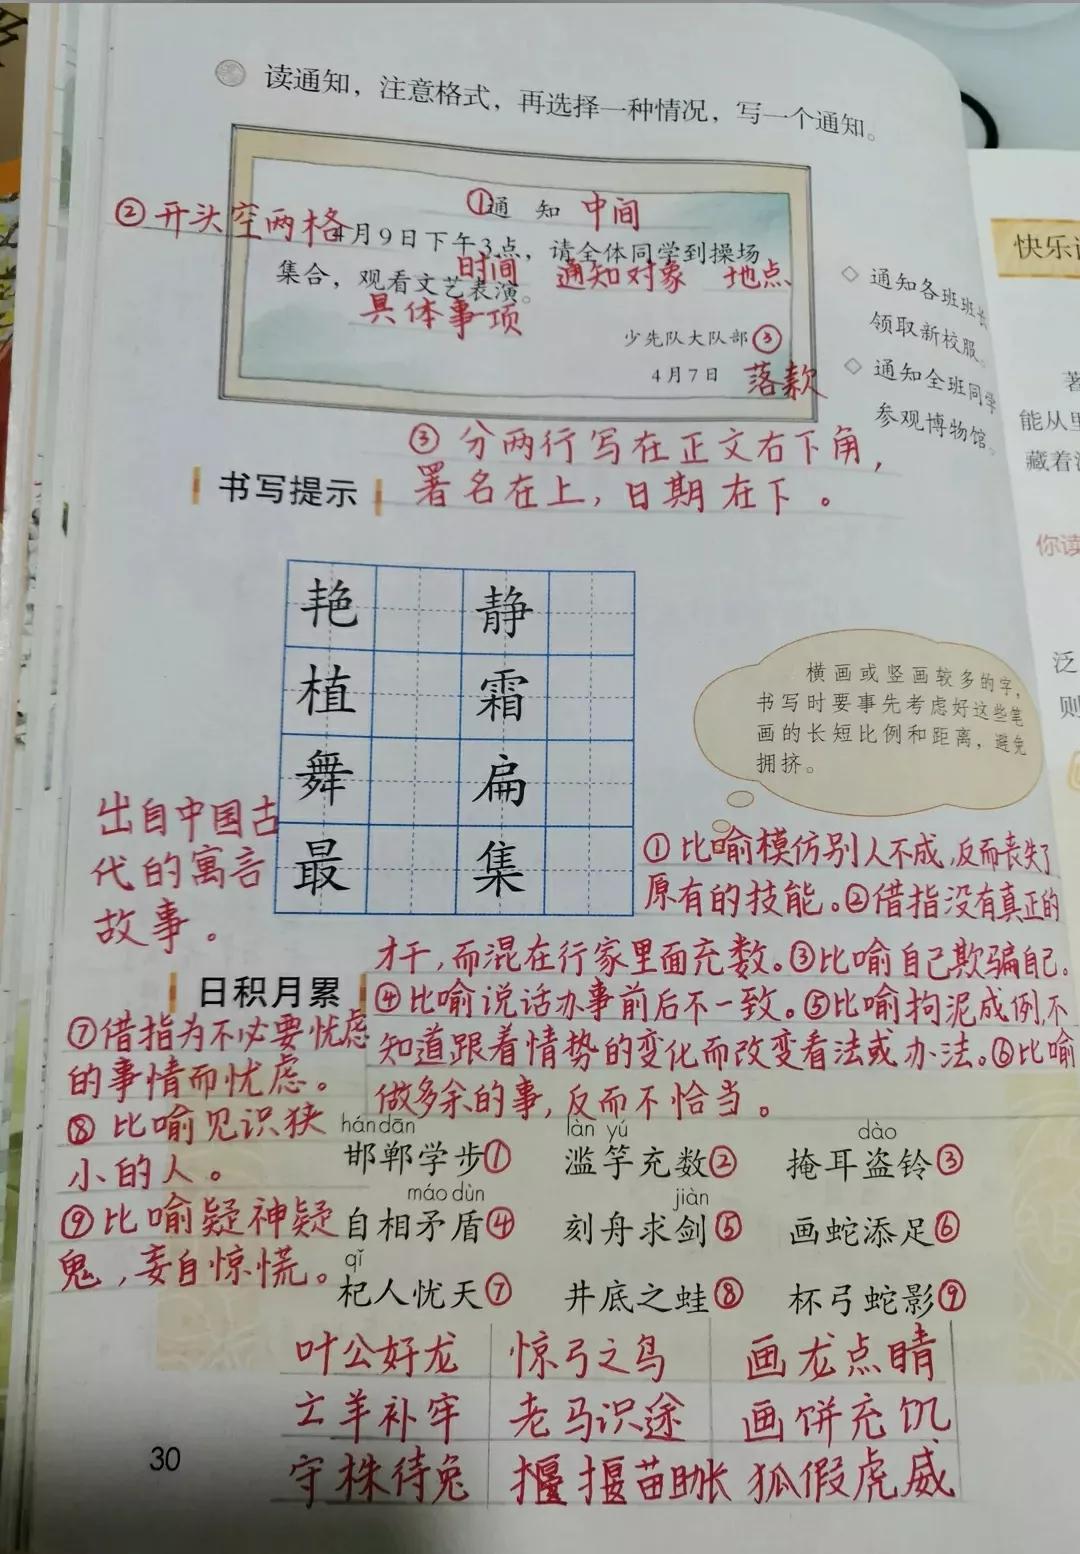 读通知，注意格式，再选择一种情况，写一个通知。
①通 知 中间
②开头空两格
4月9日下午3点，请全体同学到操场
时间 通知对象 地点
集合，观看文艺表演。
具体事项
少先队大队部③
4月7日 落款
③分两行写在正文右下角，
署名在上，日期在下。
◇ 通知各班班长
领取新校服。
◇ 通知全班同学
参观博物馆。
快乐
能从
藏着
你读
泛
则
书写提示
艳 静
植 霜
舞 扁
最 集
横画或竖画较多的字，
书写时要事先考虑好这些笔
画的长短比例和距离，避免
拥挤。
出自中国古
代的寓言
故事。
①比喻模仿别人不成，反而丧失了
原有的技能。②借指没有真正的
才干，而混在行家里面充数。③比喻自己欺骗自己。
④比喻说话办事前后不一致。⑤比喻拘泥成例，不
知道跟着情势的变化而改变看法或办法。⑥比喻
做多余的事，反而不恰当。
日积月累
⑦借指为不必要忧虑
的事情而忧虑。
⑧比喻见识狭
小的人。
⑨比喻疑神疑
鬼，妄自惊慌。
hándān làn yú dào
邯郸学步① 滥竽充数② 掩耳盗铃③
máo dùn jiàn
自相矛盾④ 刻舟求剑⑤ 画蛇添足⑥
qǐ
杞人忧天⑦ 井底之蛙⑧ 杯弓蛇影⑨
叶公好龙 惊弓之鸟 画龙点睛
亡羊补牢 老马识途 画饼充饥
守株待兔 揠苗助长 狐假虎威
30